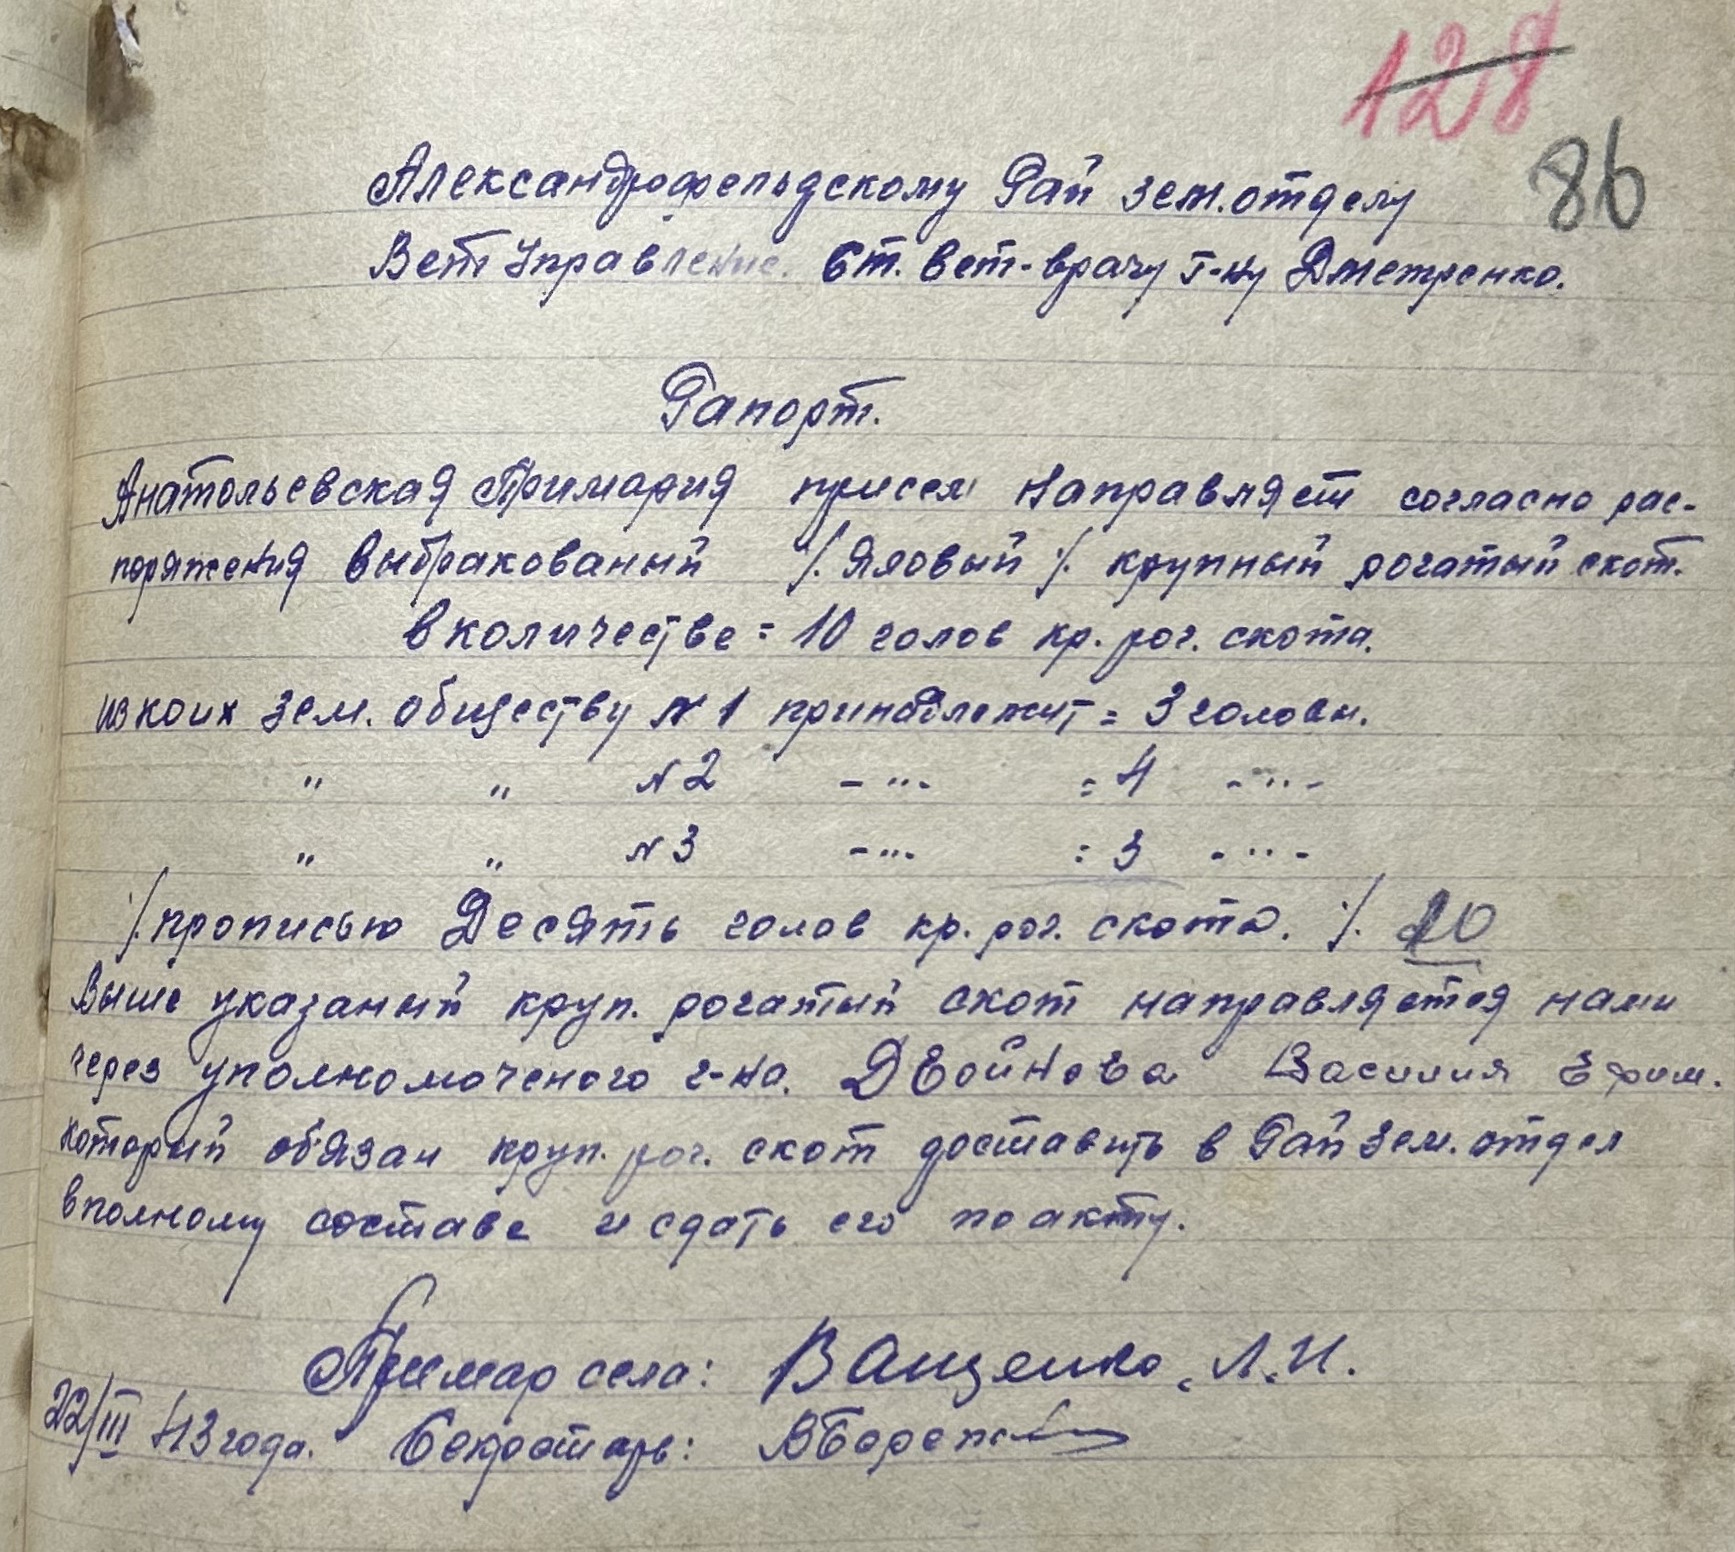 128
86
Александрофельдскому Рай зем. отделу
Вет Управление. Ст. вет-врачу г-ну Дметренко.
Рапорт.
Анатольевская Примария присем направляет согласно рас-
поряжения выбракованый ./. Яловый ./. крупный рогатый скот.
в количестве = 10 голов кр. рог. скота.
из коих зем. обществу N 1 принадлежит = 3 головы.
" " N 2 - " - = 4 - " -
" " N 3 - " - = 3 - " -
./. прописью Десять голов кр. рог. скота. ./. 10
Выше указаный круп. рогатый скот направляется нами
через уполномоченого г-на. Двойнова Василия Ефим.
который обязан круп. рог. скот доставить в Рай зем. отдел
в полному составе и сдать его по акту.
Примар села: Ващенко, Л.И.
22/III 43 года. Секретарь: